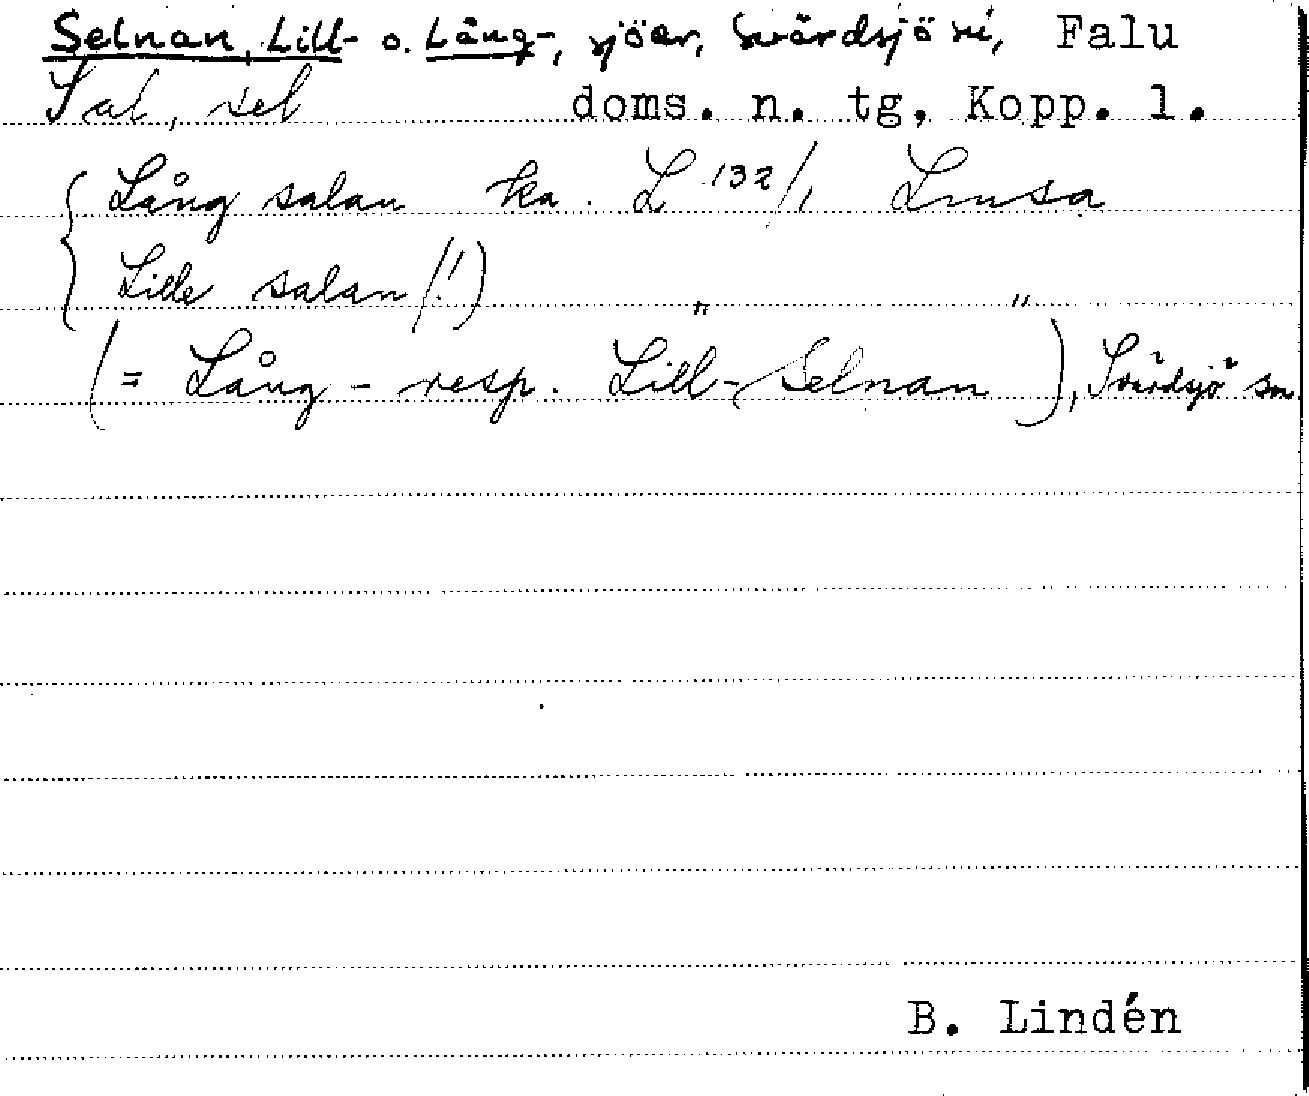 Selnan, Lill- o. Lång-, sjöar, Svärdsjö sn, Falu
Sal, sel doms. n. tg, Kopp. l.
Lång salan ka. L 132/1 Linsa
Lille salan (!) " "
(= Lång- resp. Lill-Selnan), Svärdsjö sn.
B. Lindén